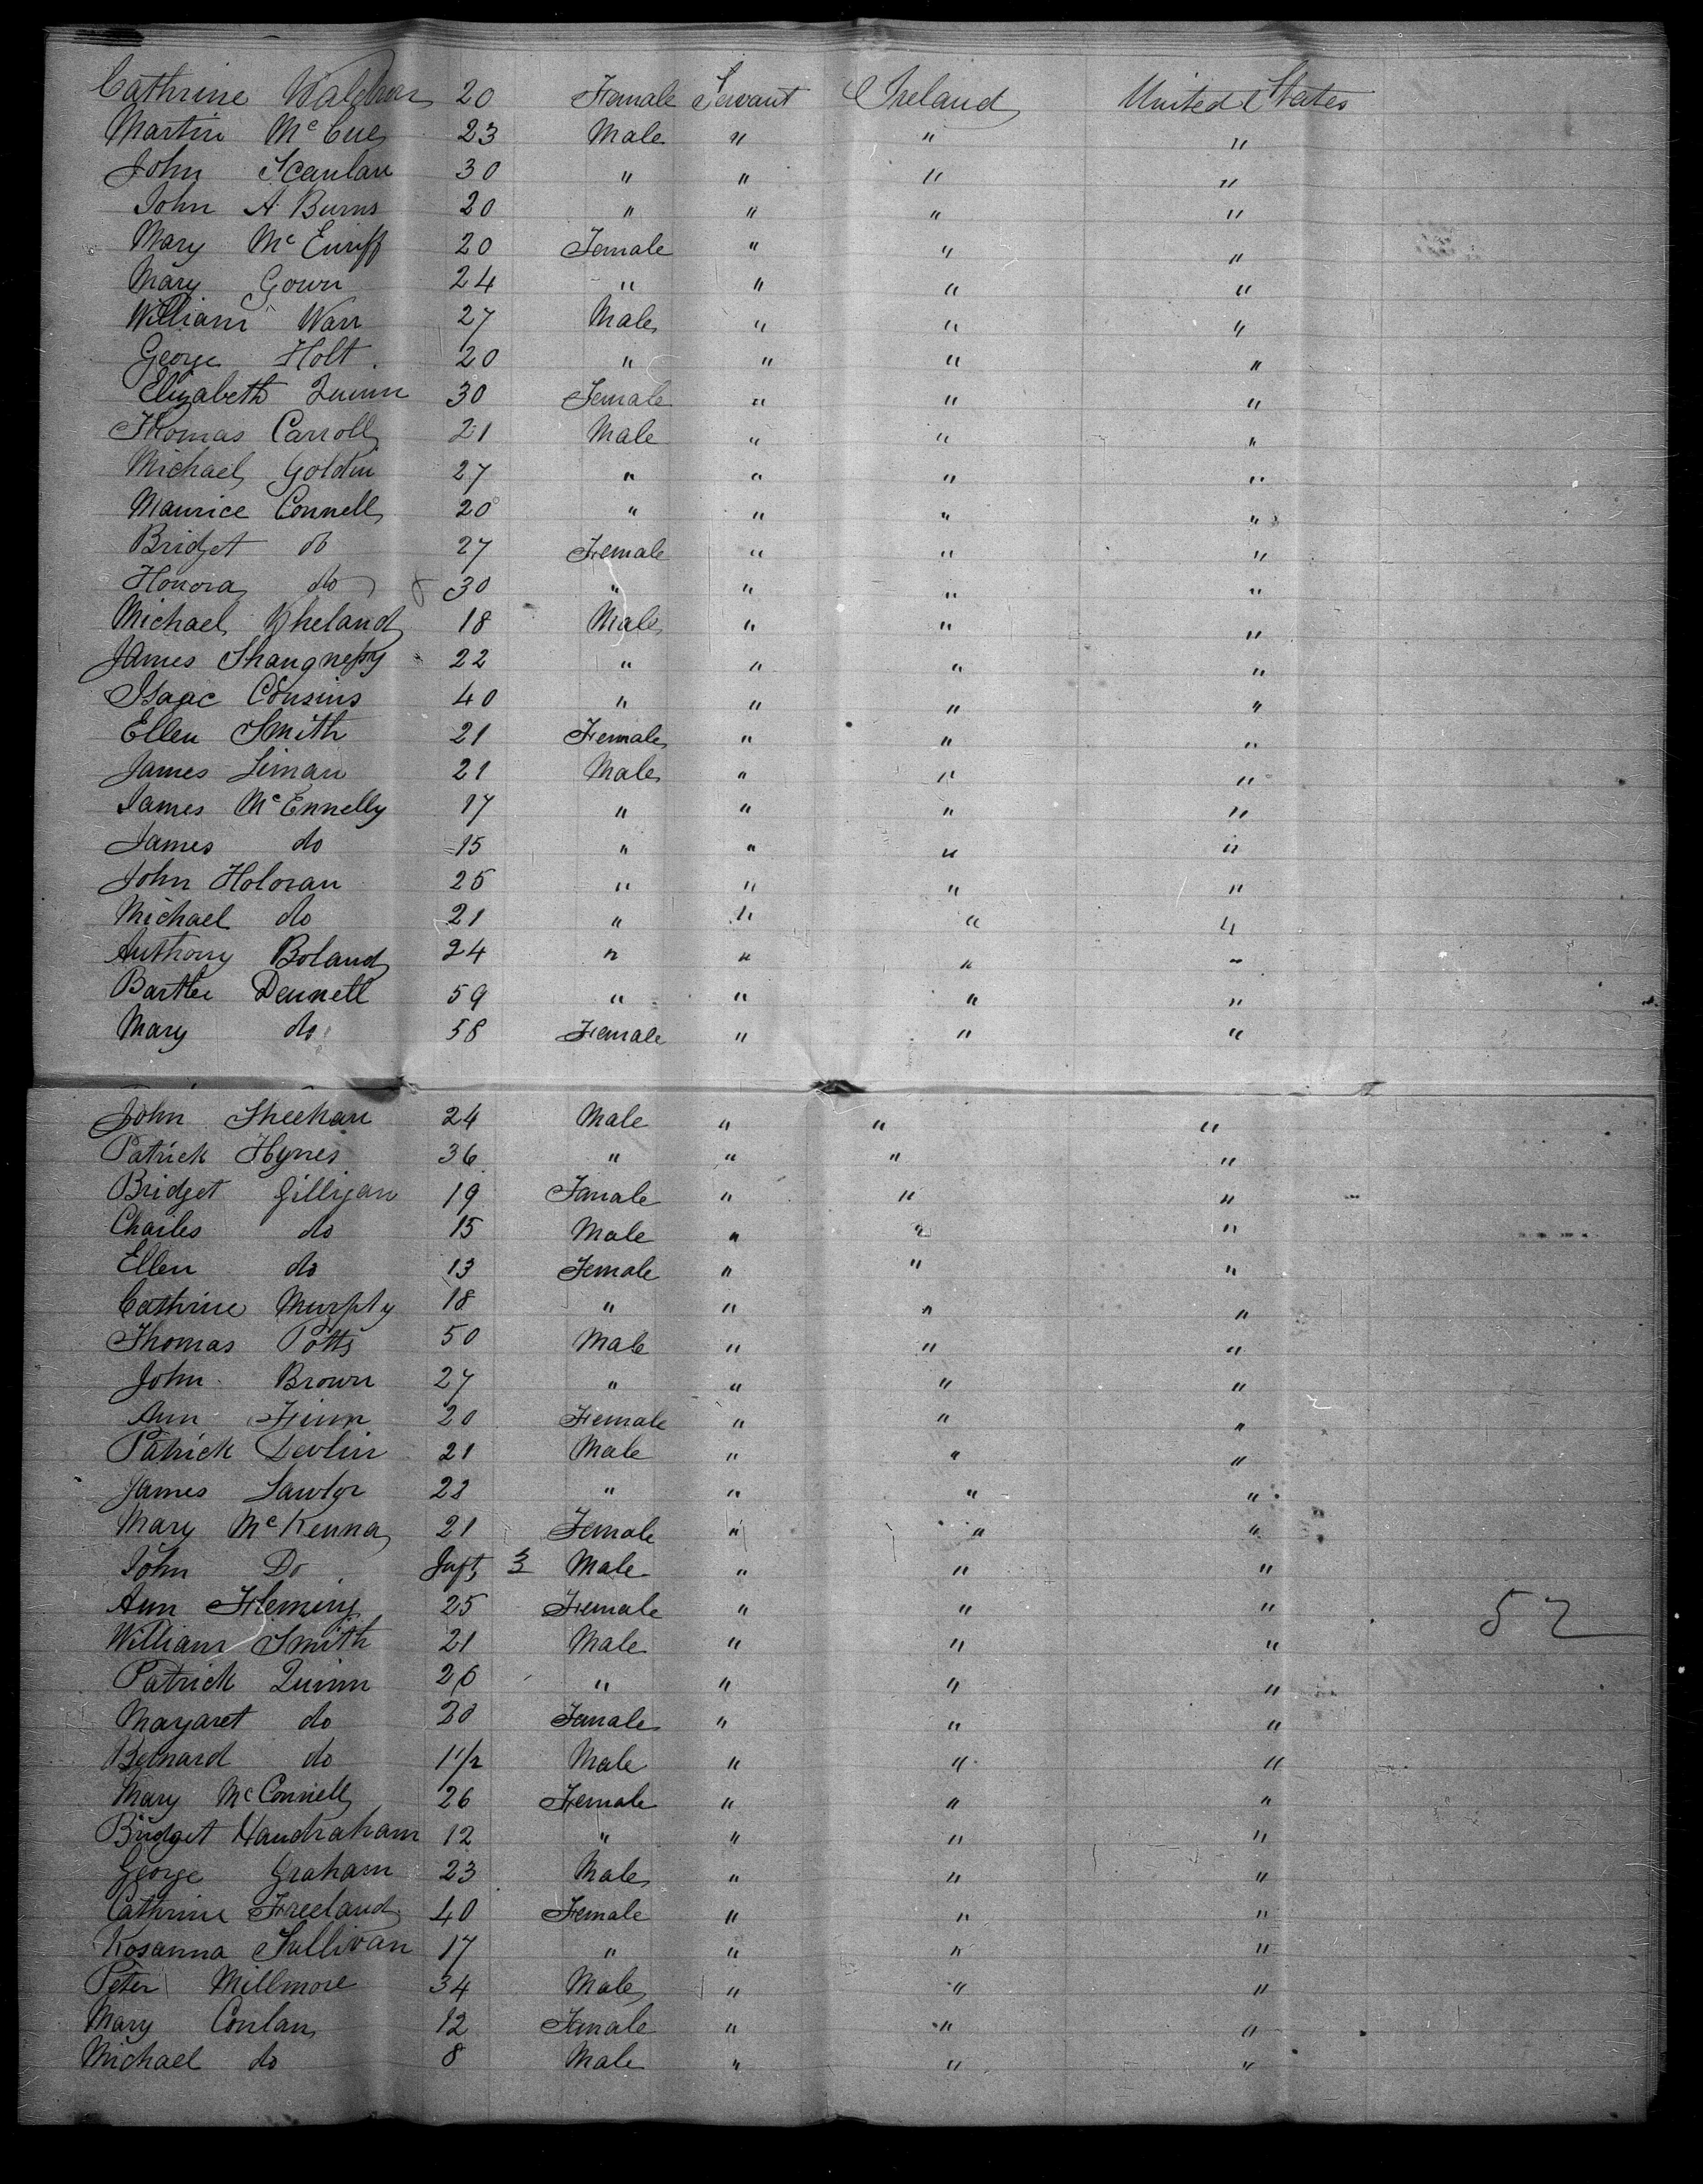 Cathrine Waldron 20 Female Servant Ireland United States
Martin McCue 23 Male " " "
John Scanlan 30 " " " "
John A Burns 20 " " " "
Mary Mc 20 Female " " "
Mary Gown 24 " " " "
William Warr 27 Male " " "
George Holt 20 " " " "
Elizabeth Quinn 30 Female " " "
Thomas Carroll 21 Male " " "
Michael Goldin 27 " " " "
Maurice Connell 20 " " " "
Bridget do 27 Female " " "
Honora do 30 " " " "
Michael Wheland 18 Male " " "
James 22 " " " "
Isaac Cousins 40 " " " "
Ellen Smith 21 Female " " "
James 21 Male " " "
James McEnnelly 17 " " " "
James do 15 " " " "
John Holoran 25 " " " "
Michael do 21 " " " "
Anthony Boland 24 " " " "
Bartlee Dennell 59 " " " "
Mary do 58 Female " " "
John Sheehan 24 Male " " "
Patrick Hynes 36 " " " "
Bridget Gilligan 19 Female " " "
Charles do 15 Male " " "
Ellen do 13 Female " " "
Cathrine Murphy 18 " " " "
Thomas Potts 50 Male " " "
John Brown 27 " " " "
Ann Finn 20 Female " " "
Patrick Devlin 21 Male " " "
James Lawlor 23 " " " "
Mary McKenna 21 Female " " "
John Do Inft 3 Male " " "
Ann Fleming 25 Female " " "
William Smith 21 Male " " " 52
Patrick Quinn 26 " " " "
Margaret do 20 Female " " "
Bernard do 11/2 Male " " "
Mary McConnell 26 Female " " "
Bridget Handraham 12 " " " "
George Graham 23 Male " " "
Cathrine Freeland 40 Female " " "
Rosanna Sullivan 17 " " " "
Peter Millmore 34 Male " " "
Mary Conlan 12 Female " " "
Michael do 8 Male " " "